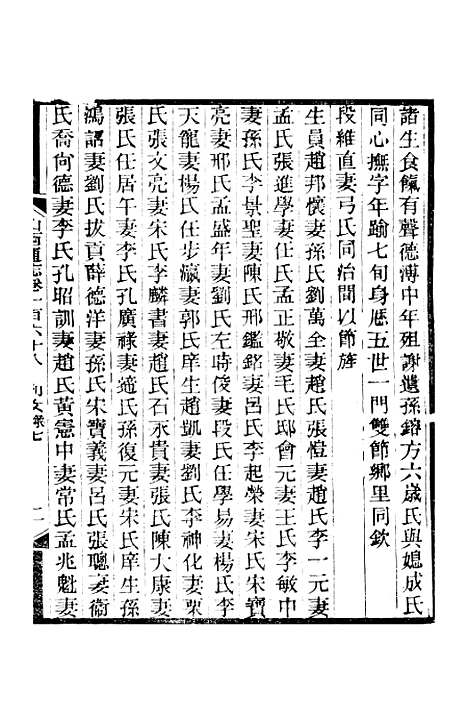 諸生食餼有聲德溥中年殂謝遺孫鎔方六歲氏與媳成氏
同心撫字年踰七旬身歷五世一門雙節鄉里同欽
段維直妻弓氏同治間以節旌
生員趙邦懷妻孫氏劉萬全妻趙氏張愷妻趙氏李一元妻
孟氏張進學妻任氏孟正敬妻毛氏邸會元妻王氏李敏中
妻孫氏李景聖妻陳氏邢鑑銘妻呂氏李起榮妻宋氏宋寶
亮妻邢氏孟盛年妻劉氏左時俊妻段氏任學易妻楊氏李
天龍妻楊氏任步瀛妻郭氏庠生趙凱妻劉氏李神化妻栗
氏張文亮妻宋氏李麟書妻趙氏石永貴妻張氏陳大康妻
張氏任居午妻李氏孔廣祿妻趙氏孫復元妻宋氏庠生孫
鴻詔妻劉氏拔貢薛德洋妻孫氏宋寶義妻呂氏張聰妻衞
氏喬向德妻李氏孔昭訓妻趙氏黃憲中妻常氏孟兆魁妻
山西通志卷一百六十八 列女錄七